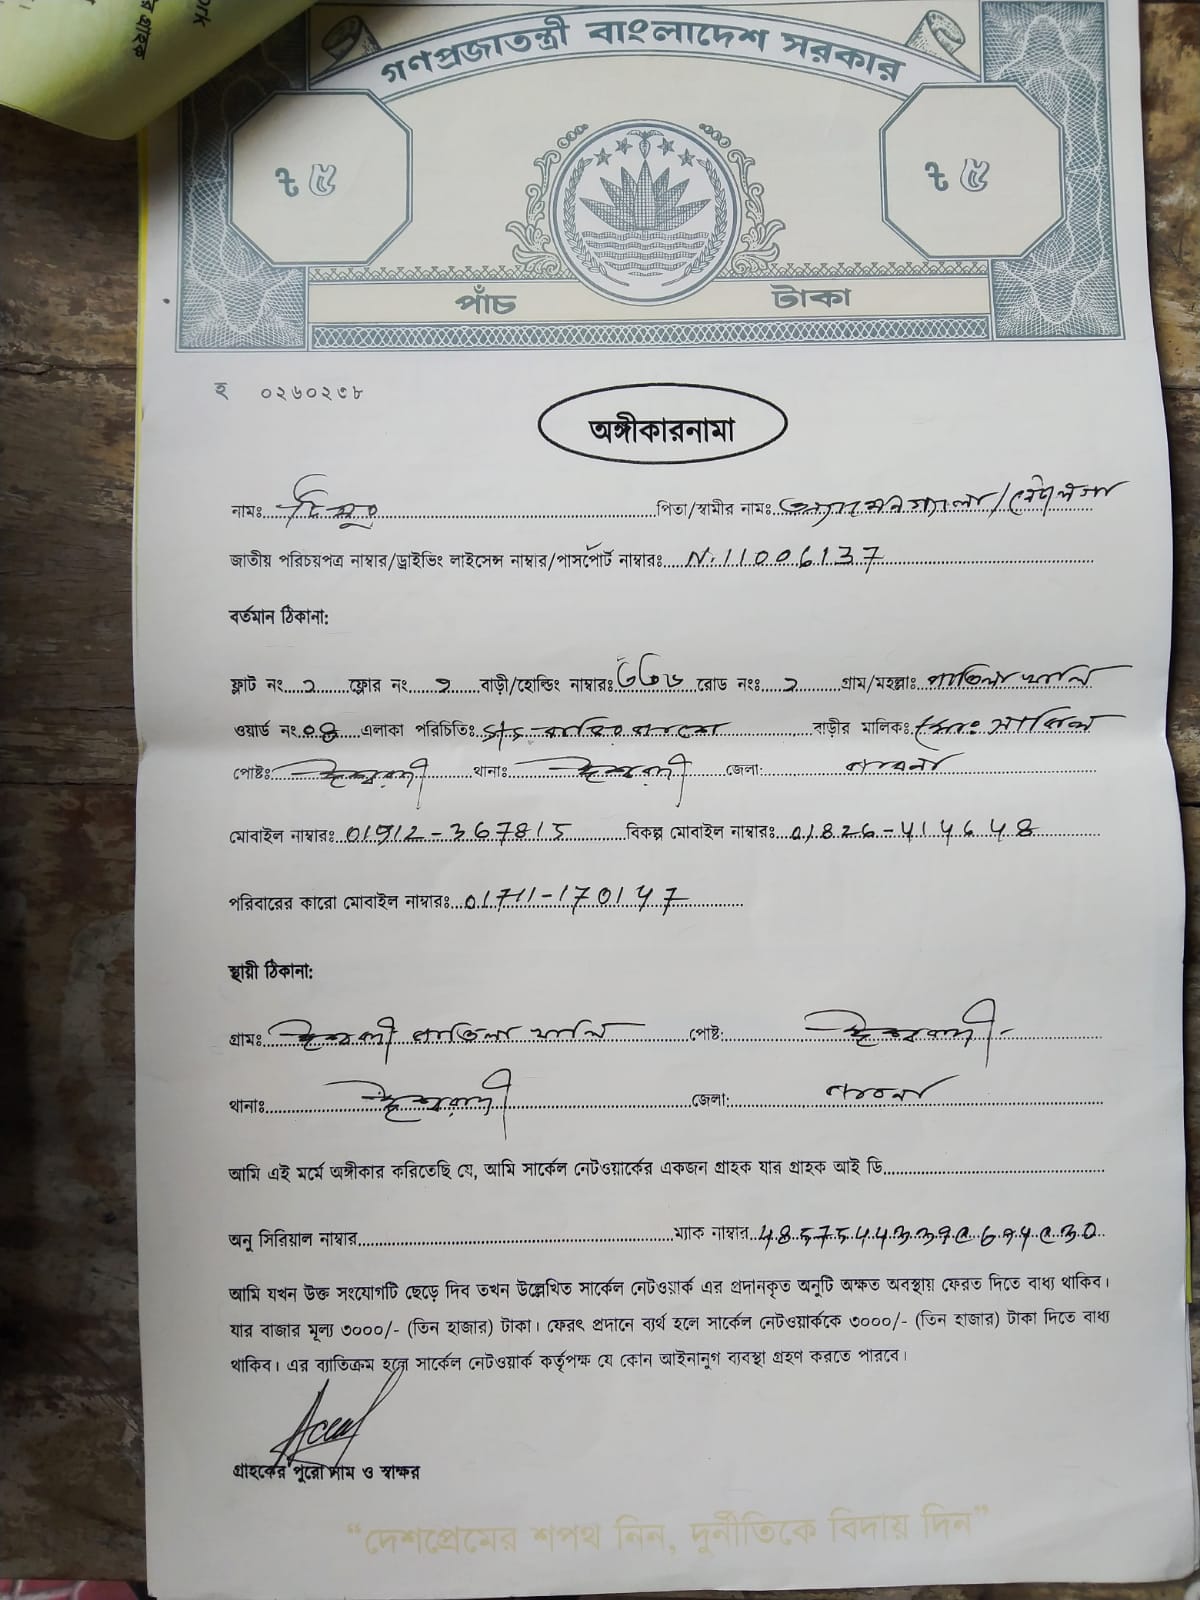 ork
র গ্রাহক
গণপ্রজাতন্ত্রী বাংলাদেশ সরকার
৳ ৫ ৳ ৫
পাঁচ টাকা
হ ০২৬০২৩৮
অঙ্গীকারনামা
নামঃ পিতা/স্বামীর নামঃ
জাতীয় পরিচয়পত্র নাম্বার/ড্রাইভিং লাইসেন্স নাম্বার/পাসপোর্ট নাম্বারঃ N.11006137
বর্তমান ঠিকানা:
ফ্লাট নং ২ ফ্লোর নং ২ বাড়ী/হোল্ডিং নাম্বারঃ রোড নংঃ ২ গ্রাম/মহল্লাঃ পাতিলাখালি
ওয়ার্ড নং 08 এলাকা পরিচিতিঃ বাড়ীর মালিকঃ
পোষ্টঃ ঈশ্বরদী থানাঃ ঈশ্বরদী জেলা: পাবনা
মোবাইল নাম্বারঃ 01912-367815 বিকল্প মোবাইল নাম্বারঃ 01826-414648
পরিবারের কারো মোবাইল নাম্বারঃ 01711-170147
স্থায়ী ঠিকানা:
গ্রামঃ ঈশ্বরদী পাতিলা খালি পোষ্ট: ঈশ্বরদী
থানাঃ ঈশ্বরদী জেলা: পাবনা
আমি এই মর্মে অঙ্গীকার করিতেছি যে, আমি সার্কেল নেটওয়ার্কের একজন গ্রাহক যার গ্রাহক আই ডি
অনু সিরিয়াল নাম্বার ম্যাক নাম্বার
আমি যখন উক্ত সংযোগটি ছেড়ে দিব তখন উল্লেখিত সার্কেল নেটওয়ার্ক এর প্রদানকৃত অনুটি অক্ষত অবস্থায় ফেরত দিতে বাধ্য থাকিব।
যার বাজার মূল্য ৩০০০/- (তিন হাজার) টাকা। ফেরৎ প্রদানে ব্যর্থ হলে সার্কেল নেটওয়ার্ককে ৩০০০/- (তিন হাজার) টাকা দিতে বাধ্য
থাকিব। এর ব্যাতিক্রম হলে সার্কেল নেটওয়ার্ক কর্তৃপক্ষ যে কোন আইনানুগ ব্যবস্থা গ্রহণ করতে পারবে।
গ্রাহকের পুরো নাম ও স্বাক্ষর
“দেশপ্রেমের শপথ নিন, দুর্নীতিকে বিদায় দিন”